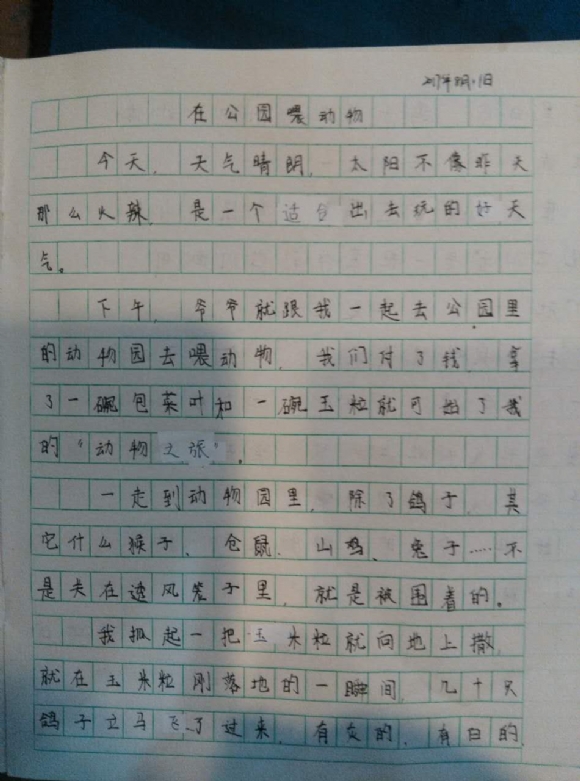 2017年8月1日
在公园喂动物
今天,天气晴朗,太阳不像昨天
那么火辣,是一个适合出去玩的好天
气。
下午,爷爷就跟我一起去公园里
的动物园去喂动物,我们付了钱,拿
了一碗包菜叶和一碗玉米粒就可
的“动物之旅”。
一走到动物园里,除了鸽子,其
它什么猴子、仓鼠、山鸡、兔子……不
是关在透风笼子里,就是被围着的。
我抓起一把玉米粒就向地上撒,
就在玉米粒刚落地的一瞬间,几十只
鸽子立马飞了过来,有灰的,有白的,